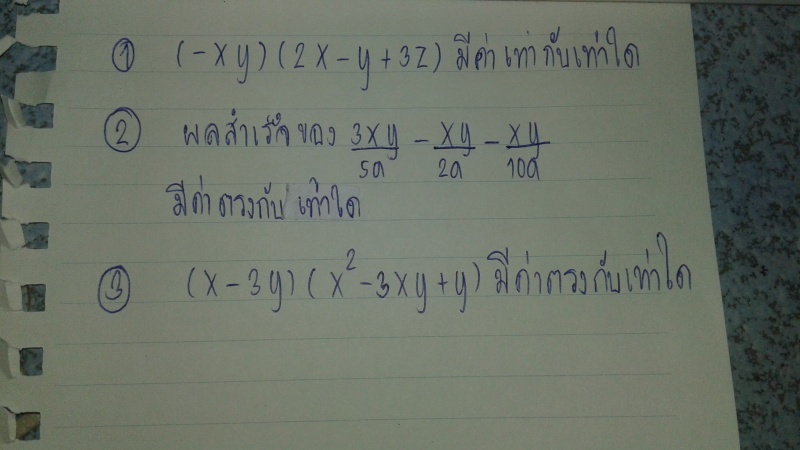 ① (-xy)(2x-y+3z) มีค่าเท่ากับเท่าใด
② ผลสำเร็จของ 3xy/5a - xy/2a - xy/10a
มีค่าตรงกับ เท่าใด
③ (x-3y)(x²-3xy+y) มีค่าตรงกับเท่าใด